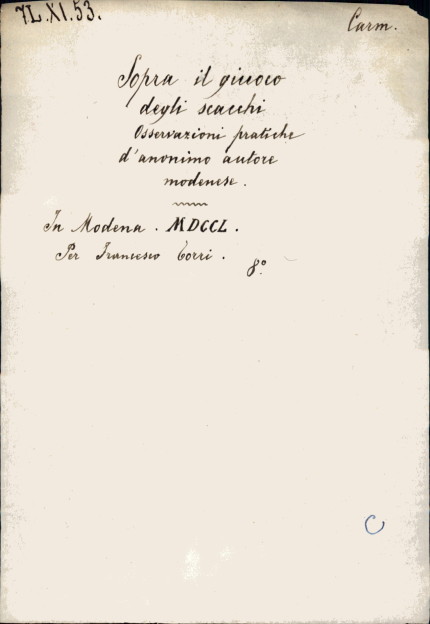 7L.XI.53.
Carm.
Sopra il giuoco
degli scacchi
Osservazioni pratiche
d'anonimo autore
modenese.
In Modena. MDCCL.
Per Francesco Torri.
8.°
C